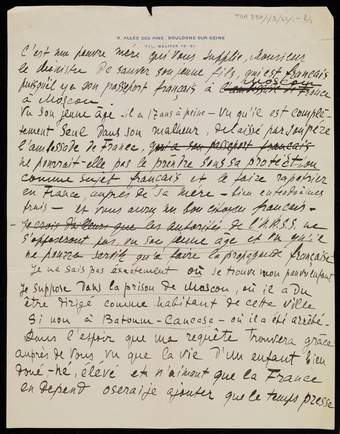 9, ALLÉE DES PINS, BOULOGNE-SUR-SEINE
C'est une pauvre mère qui vous supplie, Monsieur
le Ministre de sauver son jeune fils, qui est français
puisqu'il y a son passeport français à l'ambassade de France
Moscou
à Moscou
Vu son jeune âge - il a 17 ans à peine - Vu qu'il est complè-
tement seul dans son malheur, délaissé par son père
l'ambassade de France, qui a son passeport français
ne pourrait-elle pas le prendre sous sa protection
comme sujet français et le faire rapatrier
en France, auprès de sa mère - bien entendu à mes
frais - et vous aurez un bon citoyen français -
Je crois d'ailleurs que les autorités de l'U.R.S.S. ne
s'opposeront pas, vu son jeune âge et vu qu'il
ne pourra servir qu'à faire la propagande française
Je ne sais pas exactement où se trouve mon pauvre enfant
Je suppose dans la prison de Moscou, où il a dû
être dirigé comme habitant de cette ville
Si non à Batoum-Caucase - où il a été arrêté -
Dans l'espoir que ma requête trouvera grâce
auprès de vous vu que la vie d'un enfant bien
doué-né, élevé et n'aimant que la France
en dépend oserai-je ajouter que le temps presse